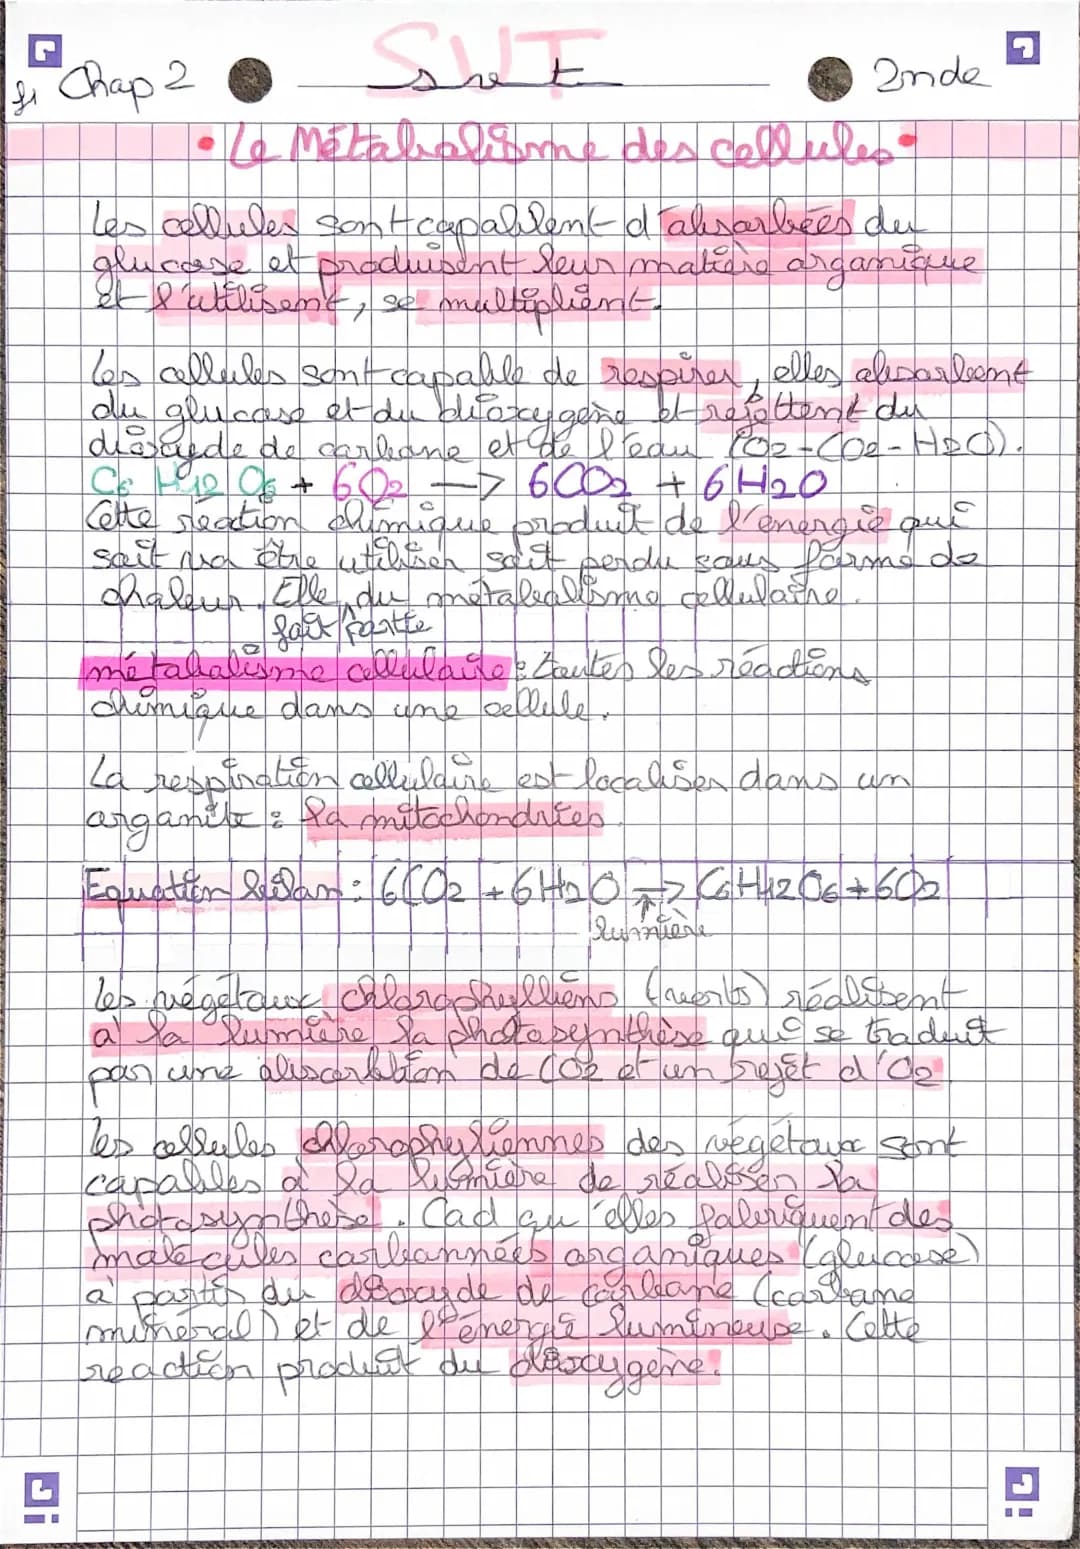 Chap 2
SVT
svt
2nde
• Le Métabolisme des cellules •
Les cellules sont capablent d'absorbées du
glucose et produisent leur matière organique
et l'utilisent, se multiplient.
Les cellules sont capable de respirer, elles absorbent
du glucose et du dioxygène et rejettent du
dioxyde de carbone et de l'eau (O2-CO2-H2O).
C6 H12 O6 + 6O2 —> 6CO2 + 6H2O
Cette réaction chimique produit de l'énergie qui
soit va être utiliser soit perdu sous forme de
chaleur. Elle du métabolisme cellulaire.
fait partie
métabolisme cellulaire : toutes les réactions
chimique dans une cellule.
La respiration cellulaire est localiser dans un
organite : la mitochondries.
Equation bilan : 6CO2 + 6H2O —> C6H12O6 + 6O2
lumière
Les végétaux chlorophylliens (verts) réalisent
à la lumière la photosynthèse qui se traduit
par une absorbtion de CO2 et un rejet d'O2
Les cellules chlorophyliennes des végétaux sont
capables à la lumière de réaliser la
photosynthèse. Cad qu'elles fabriquent des
molécules carbonnées organiques (glucose)
à partir du dioxyde de carbone (carbone
minéral) et de l'énergie lumineuse. Cette
reaction produit du dioxygène.